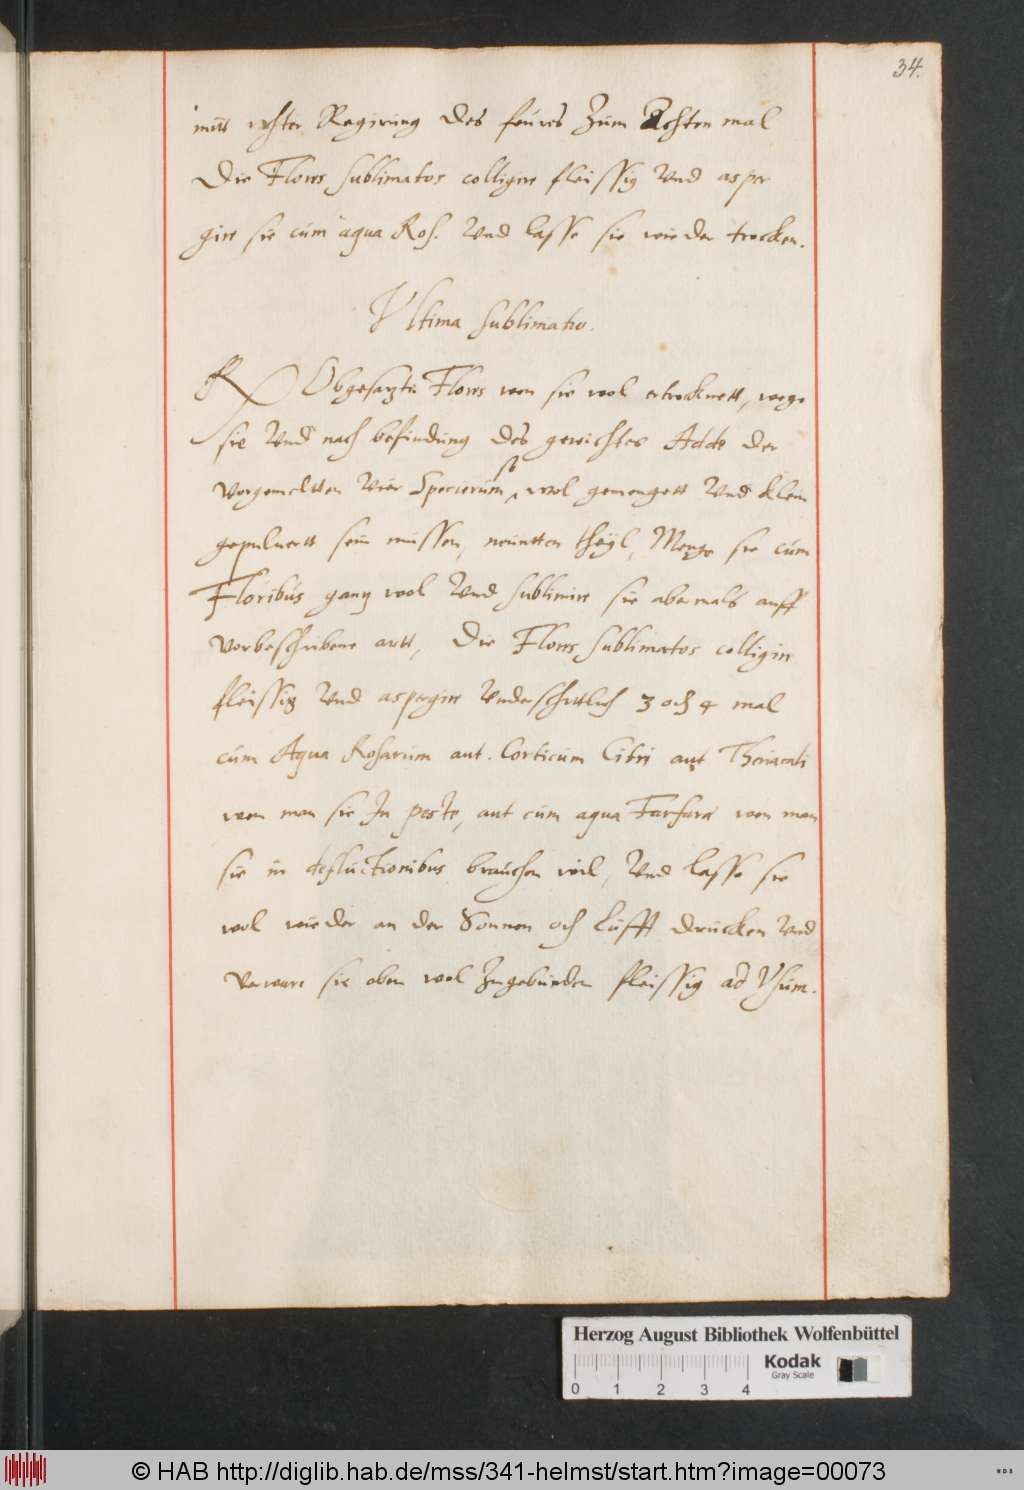 34.
mitt rechter Regirung des feures Zum Achten mal
Die Flores sublimatos colligire fleissig Vnd asper
gire sie cum aqua Ros. Vnd lasse sie wieder trocken.
Vltima sublimatio.
℞ Obgesagte Flores wen sie wol ertrocknett, wege
sie Vnd nach befindung des gewichtes Adde der
vorgemeltten Vier Specierum, so wol gemengett Vnd klein
gepulvertt sein müssen, neuntten theyl, Menge sie cum
Floribus gantz wol Vnd sublimire sie abermals auff
vorbeschribene artt, Die Flores sublimatos colligire
fleissig Vnd aspergire Vnderschittlich 3 och 4 mal
cum Aqua Rosarum aut. Corticum Citri aut Theriacali
wen man sie In peste, aut cum aqua Farfara wen man
sie in defluctionibus brauchen wil, Vnd lasse sie
wol wieder an der Sonnen och Lufft drucken Vnd
verware sie oben wol Zugebunden fleissig ad Vsum.
Herzog August Bibliothek Wolfenbüttel
Kodak
Gray Scale
0 1 2 3 4
© HAB http://diglib.hab.de/mss/341-helmst/start.htm?image=00073